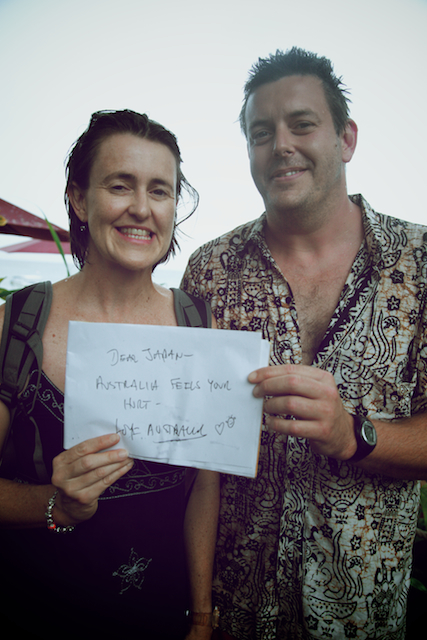 DEAR JAPAN—
AUSTRALIA FEELS YOUR
HURT—
AUSTRALIA